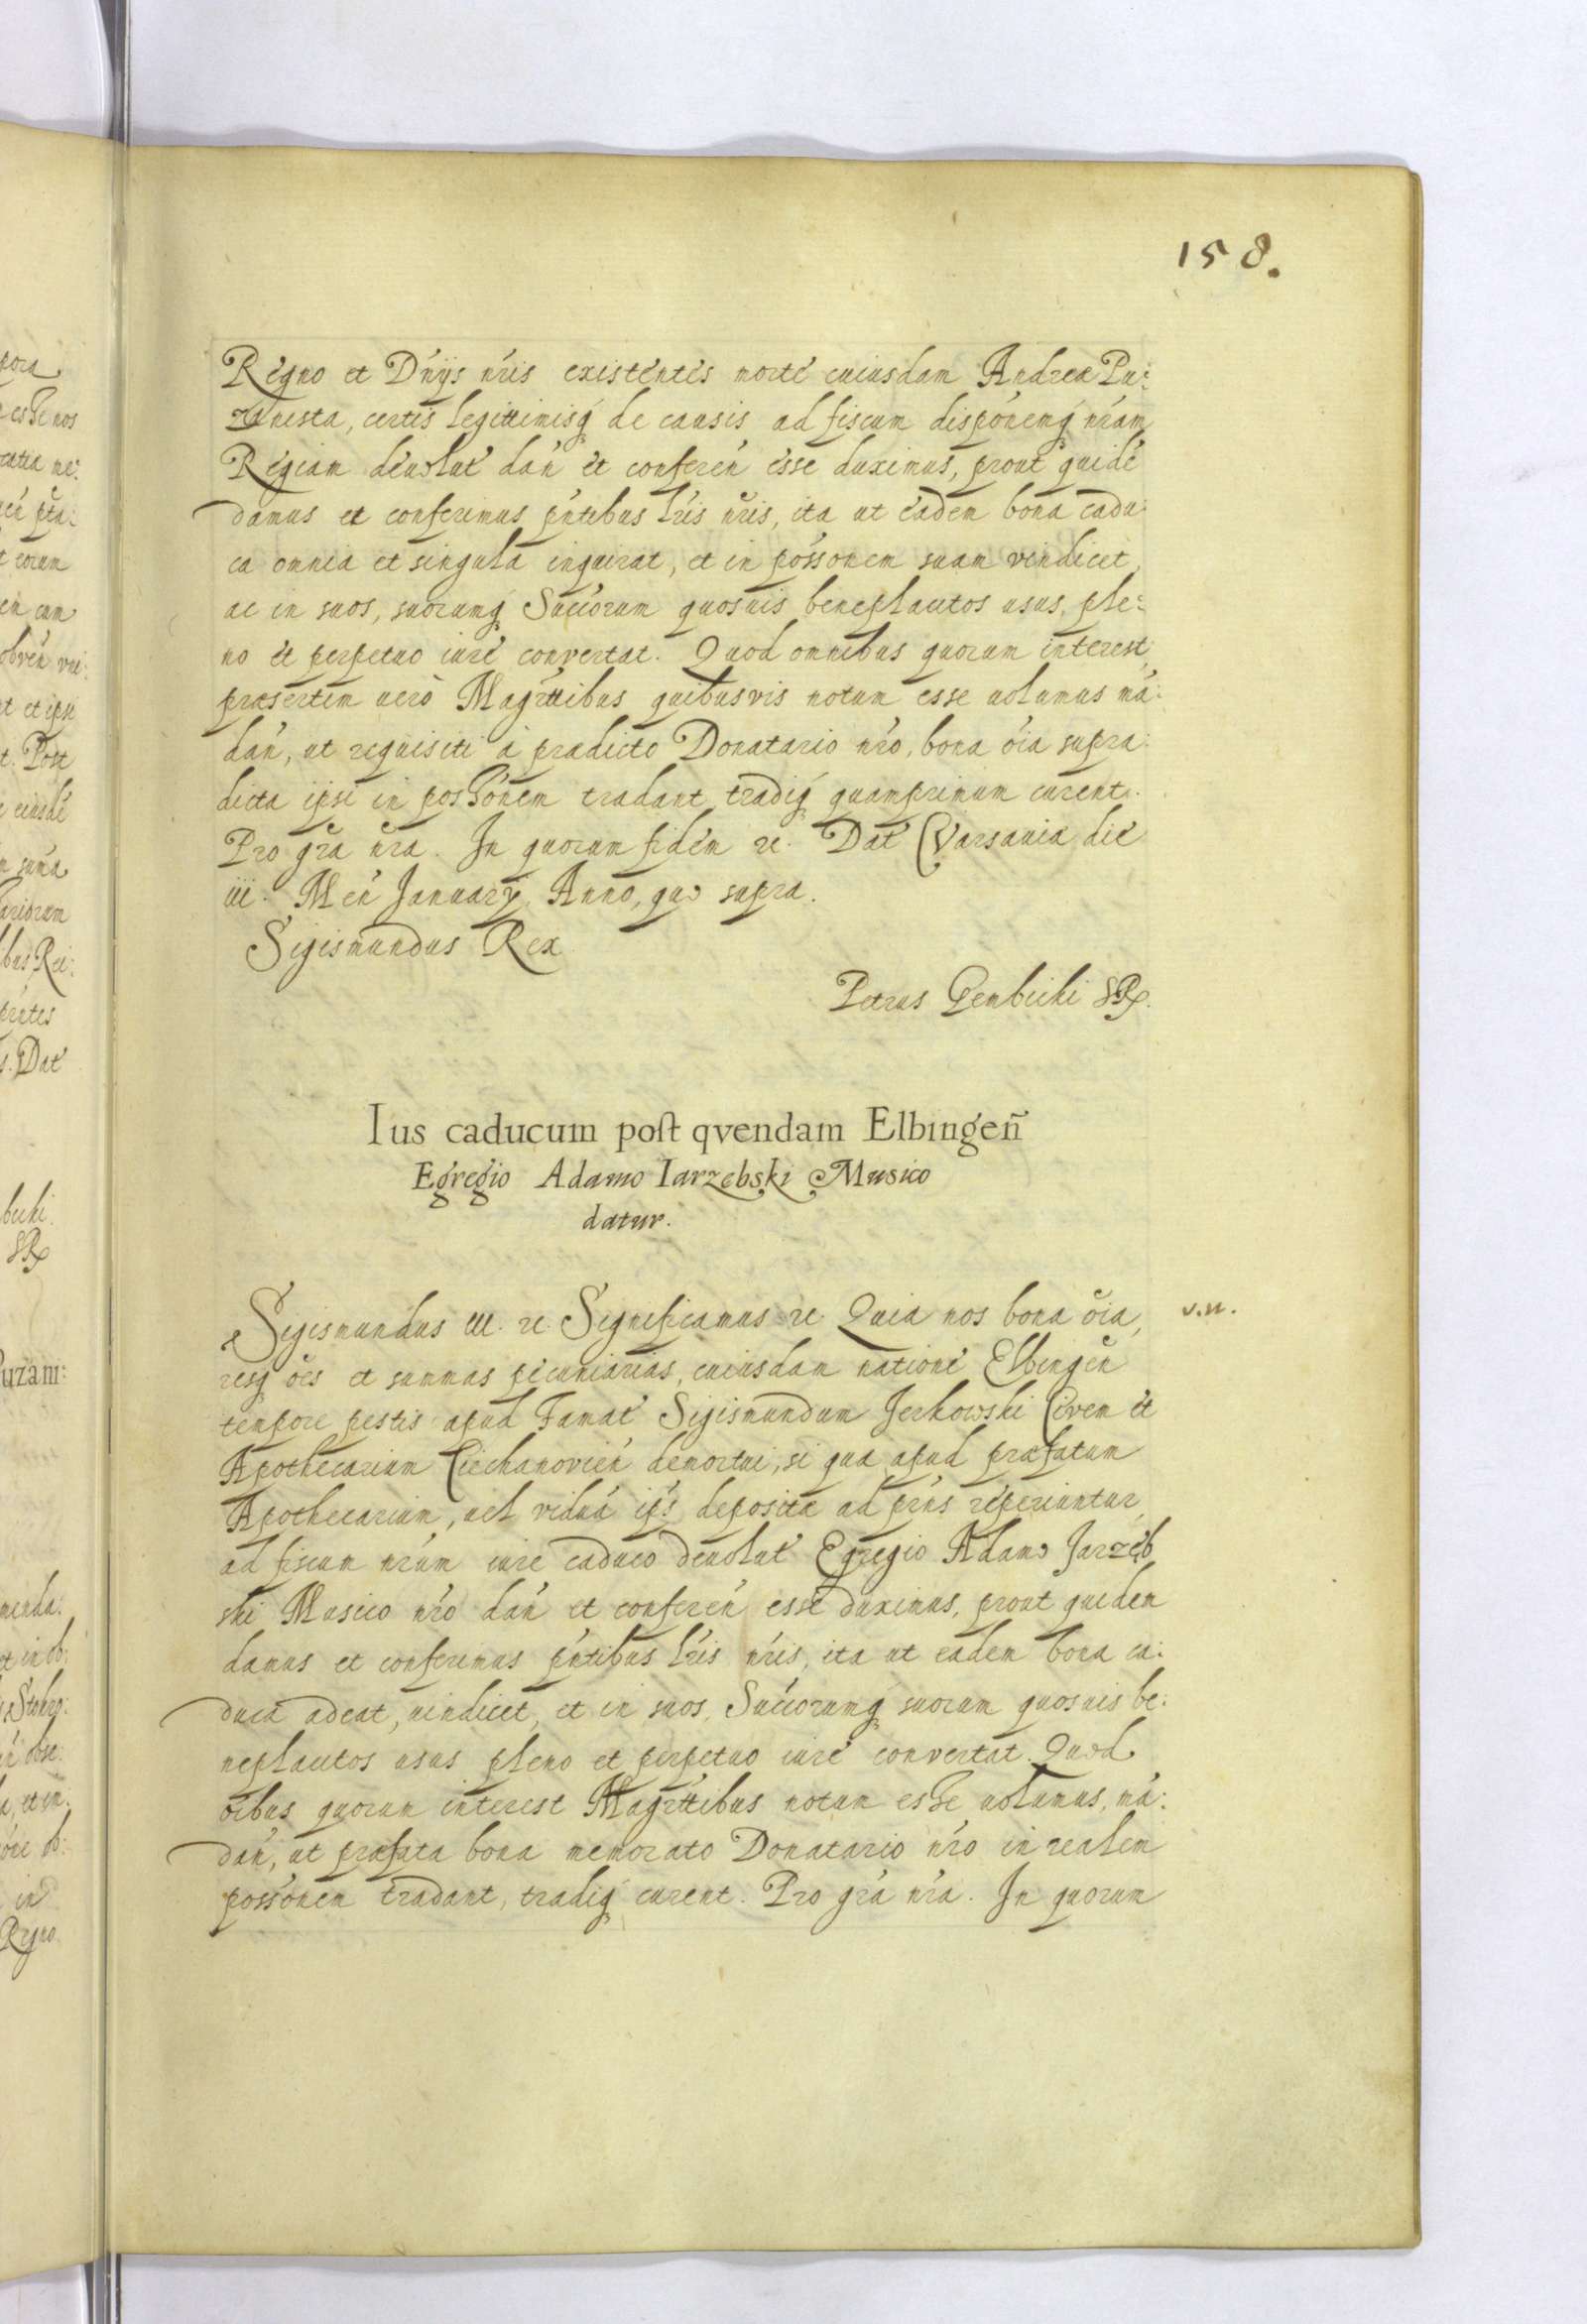 158.
Regno et Dńijs nŕis existentes morte cuiusdam Andreæ Pu:
zanista, certis legittimisq́ de causis ad fiscum dispónemq́ nŕam
Regiam deuolut́ dań et confereń esse duximus, prout quidē
damus et conferimus pńtibus lŕis nŕis, ita ut eadem bona cadu
ca omnia et singula inquirat, et in possónem suam vendicet,
ac in suos, suorumq́ Succórum quosuis beneplacitos usus, ple:
no et perpetuo iure convertat. Quod omnibus quorum interest,
præsertim uerò Magŕttibus quibusvis notum esse uolumus mā:
dań, ut requisiti à prædicto Donatario nŕo, bona óia supra:
dicta ipsi in possónem tradant tradiq́ quamprimum curent.
Pro grā nrā. In quorum fidem ꝛc. Dat́ Varsauiæ die
iii. Meń January, Anno, quo supra.
Sigismundus Rex
Petrus Gembicki SR.
Ius caducum post qvendam Elbingeñ
Egregio Adamo Iarzębski Musico
datur.
Sigismundus III. ꝛc. Significamus ꝛc. Quia nos bona óia,
v.n.
resq́ óes et summas pecuniarias, cuiusdam natione Elbingeń
tempore pestis apud Famat́ Sigismundum Jerkowski Civem et
Apothecarium Ciechanovień demortui, si qua apud præfatum
Apothecarium, uel viduā ips̄ deposita ad prńs reperiuntur,
ad fiscum nŕum iure caduco deuolut́ Egregio Adamo Jarzęb
ski Musico nŕo dań et confereń esse duximus, prout quidem
damus et conferimus pńtibus lŕis nŕis, ita ut eadem bona ca:
duca adeat, uindicet, et in suos, Succórumq́ suorum quosuis be:
neplacitos usus pleno et perpetuo iure convertat. Quod
óibus quorum interest Magŕttibus notum esse uolumus, mā:
dań, ut præfata bona memorato Donatario nŕo in realem
possónem tradant, tradiq́ curent. Pro grā nrā. In quorum